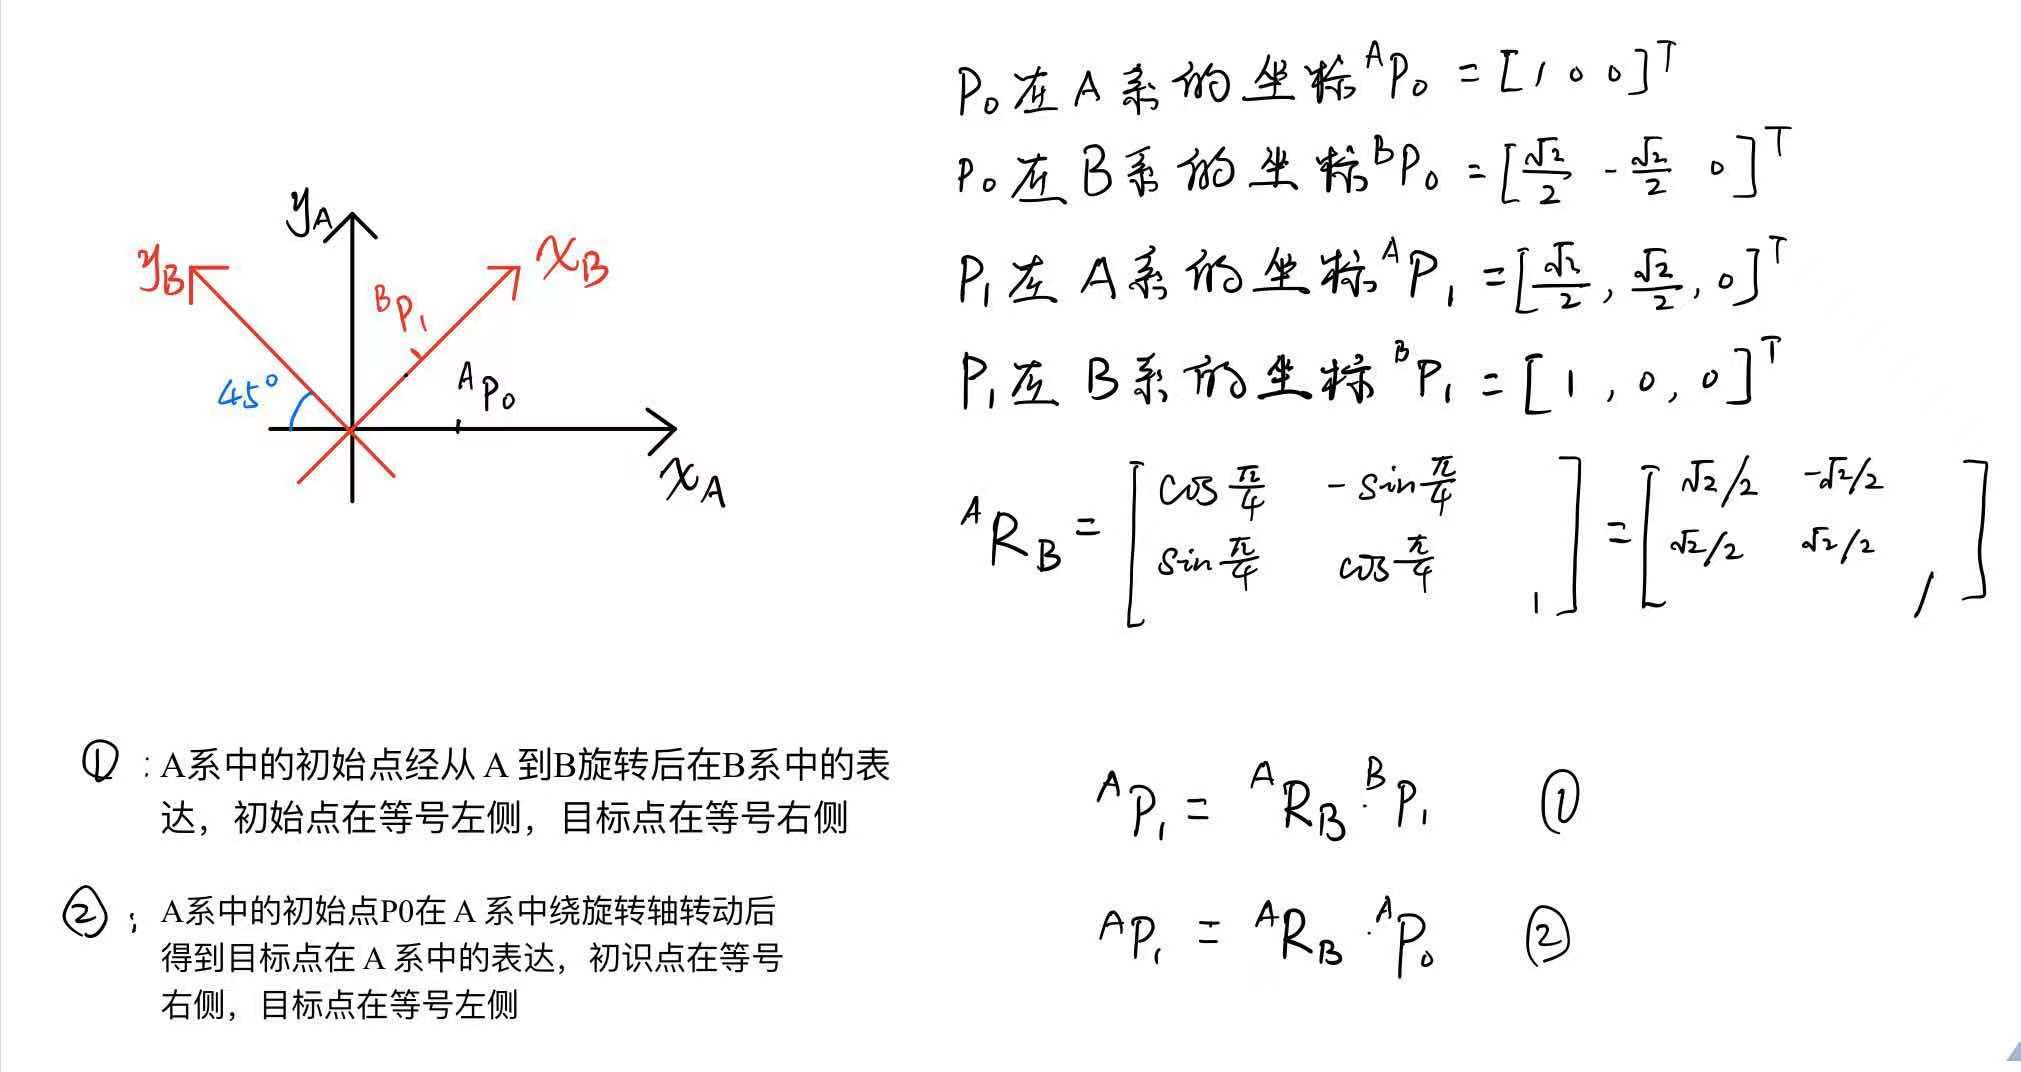 P₀在A系的坐标 ᴬP₀ = [1 0 0]ᵀ
P₀在B系的坐标 ᴮP₀ = [√2/2 -√2/2 0]ᵀ
y_A
y_B
x_B
ᴮP₁
P₁在A系的坐标 ᴬP₁ = [√2/2, √2/2, 0]ᵀ
45°
ᴬP₀
P₁在B系的坐标 ᴮP₁ = [1, 0, 0]ᵀ
x_A
ᴬR_B = [cos π/4 -sin π/4; sin π/4 cos π/4; 1] = [√2/2 -√2/2; √2/2 √2/2; 1]
① : A系中的初始点经从 A 到B旋转后在B系中的表
达，初始点在等号左侧，目标点在等号右侧
ᴬP₁ = ᴬR_B · ᴮP₁ ①
② ; A系中的初始点P0在 A 系中绕旋转轴转动后
得到目标点在 A 系中的表达，初识点在等号
右侧，目标点在等号左侧
ᴬP₁ = ᴬR_B · ᴬP₀ ②